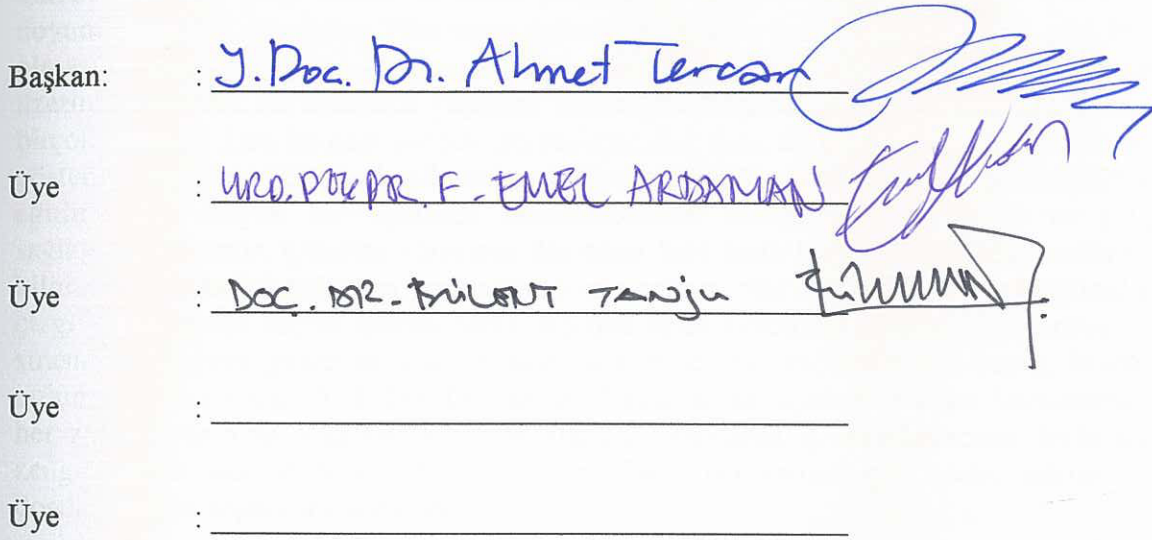 Başkan: : Y.Doc. Dr. Ahmet Tercan
Üye : YRD.DOÇ.DR. F. EMEL ARDAMAN
Üye : DOÇ. DR. BÜLENT TANJU
Üye :
Üye :